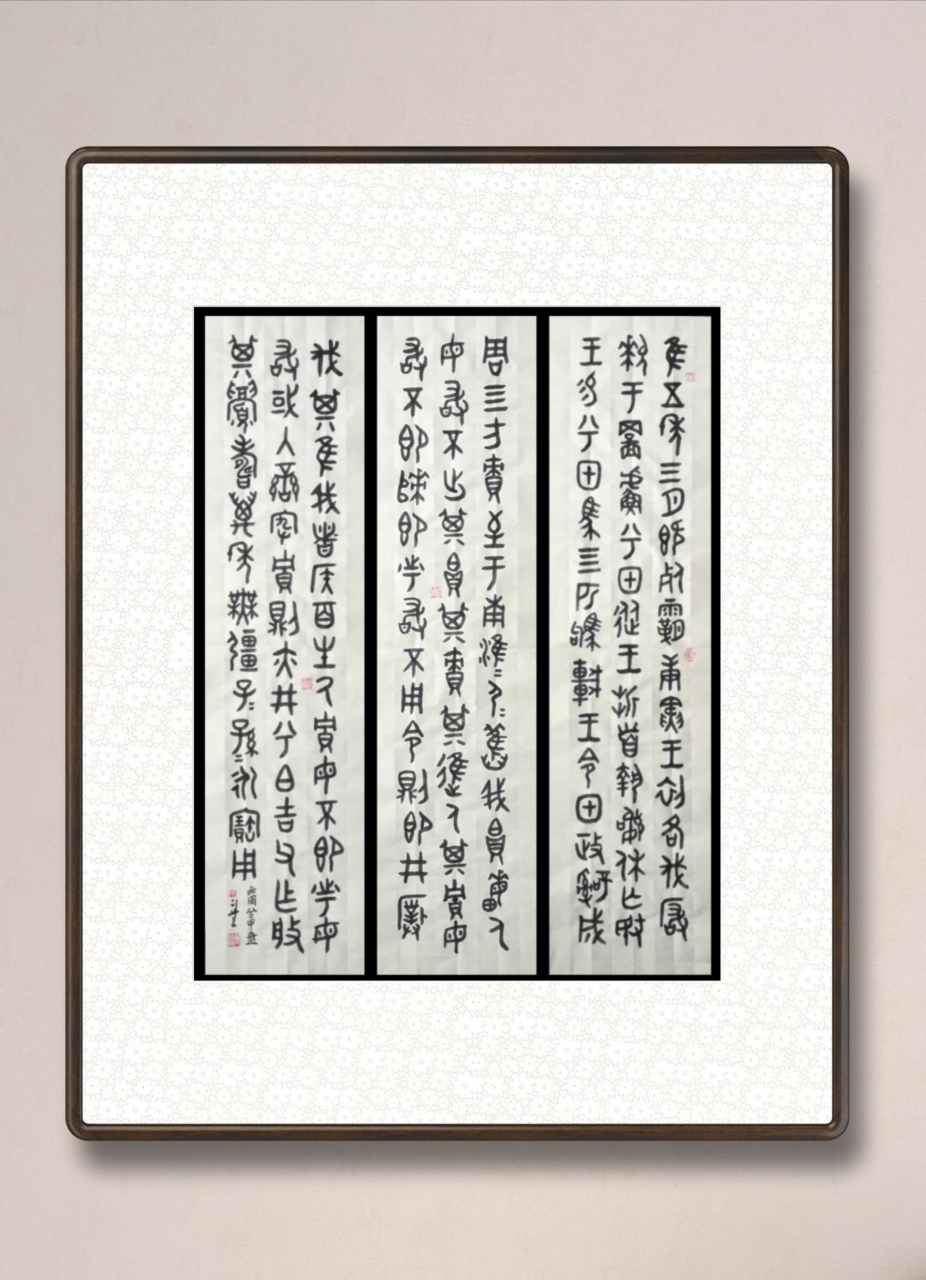 隹五年三月既死霸庚寅王初各伐厰
𤞤于䍙䖒兮甲從王折首執訊休亡敃
王易兮甲馬四匹駒車王令甲政𤔲成
周四方責至于南淮=尸=舊我帛畮人
毋敢不出其帛其責其進人其貯毋
敢不即次即市敢不用令則即井撲
伐其隹我者侯百生厥貯毋不即市毋
敢或入蠻宄貯則亦井兮白吉父乍般
其眉壽萬年無疆子=孫=永寶用
西周兮甲盘